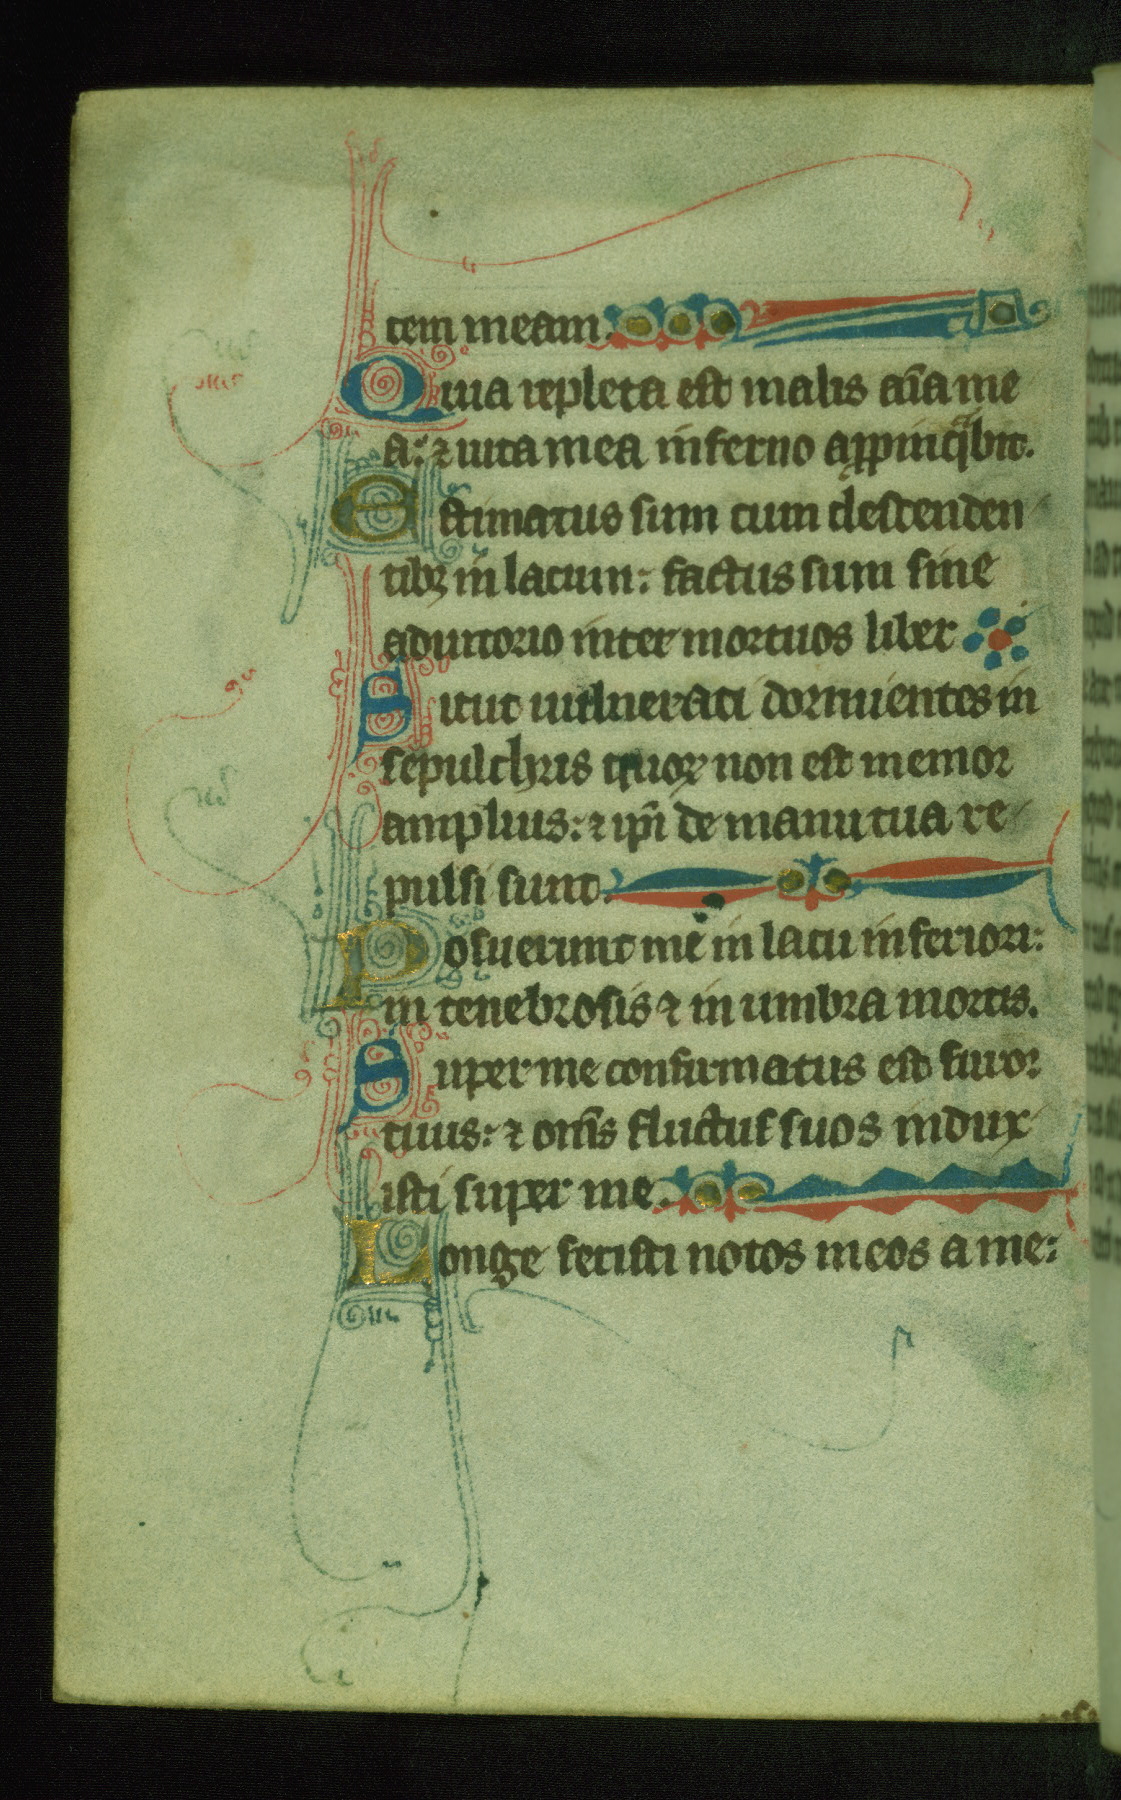 tem meam.
Quia repleta est malis aīa me
a: ⁊ uita mea inferno appinqͣbit.
Estimatus sum cum descenden
tibꝫ in lacum: factus sum sine
adiutorio inter mortuos liber
Sicut uulnerati dormientes in
sepulchris quoꝝ non est memor
amplius: ⁊ ip̄i de manu tua re
pulsi sunt.
Posuerunt me in lacu inferiori:
in tenebrosis ⁊ in umbra mortis.
Super me confirmatus est furor
tuus: ⁊ om̄s fluctus suos indux
isti super me.
Longe fecisti notos meos a me: